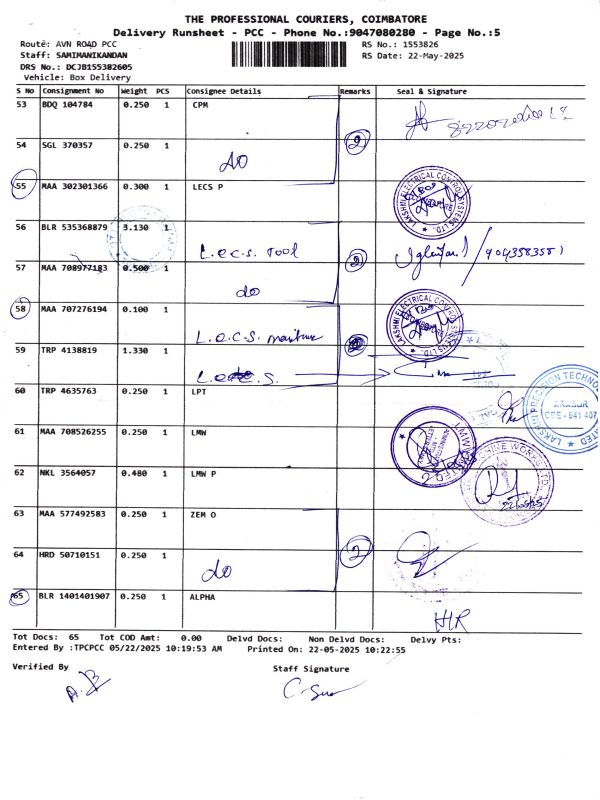 THE PROFESSIONAL COURIERS, COIMBATORE
Delivery Runsheet - PCC - Phone No.:9047080280 - Page No.:5
Route: AVN ROAD PCC
RS No.: 1553826
Staff: SAMIMANIKANDAN
RS Date: 22-May-2025
DRS No.: DCJB155382605
Vehicle: Box Delivery
S No Consignment No Weight PCS Consignee Details Remarks Seal & Signature
53 BDQ 104784 0.250 1 CPM
54 SGL 370357 0.250 1
do
2
55 MAA 302301366 0.300 1 LECS P
LAKSHMI ELECTRICAL CONTROL SYSTEMS LTD.
56 BLR 535368879 3.130 1
L.e.c.s. Tool
2
57 MAA 708977183 0.500 1
do
58 MAA 707276194 0.100 1
L.e.c.s
LAKSHMI ELECTRICAL CONTROL SYSTEMS LTD.
59 TRP 4138819 1.330 1
60 TRP 4635763 0.250 1 LPT
LAKSHMI PRECISION TECHNO
ARASUR
CBE - 641 407
61 MAA 708526255 0.250 1 LMW
62 NKL 3564057 0.480 1 LMW P
63 MAA 577492583 0.250 1 ZEM O
64 HRD 50710151 0.250 1
do
2
65 BLR 1401401907 0.250 1 ALPHA
Tot Docs: 65 Tot COD Amt: 0.00 Delvd Docs: Non Delvd Docs: Delvy Pts:
Entered By :TPCPCC 05/22/2025 10:19:53 AM Printed On: 22-05-2025 10:22:55
Verified By Staff Signature